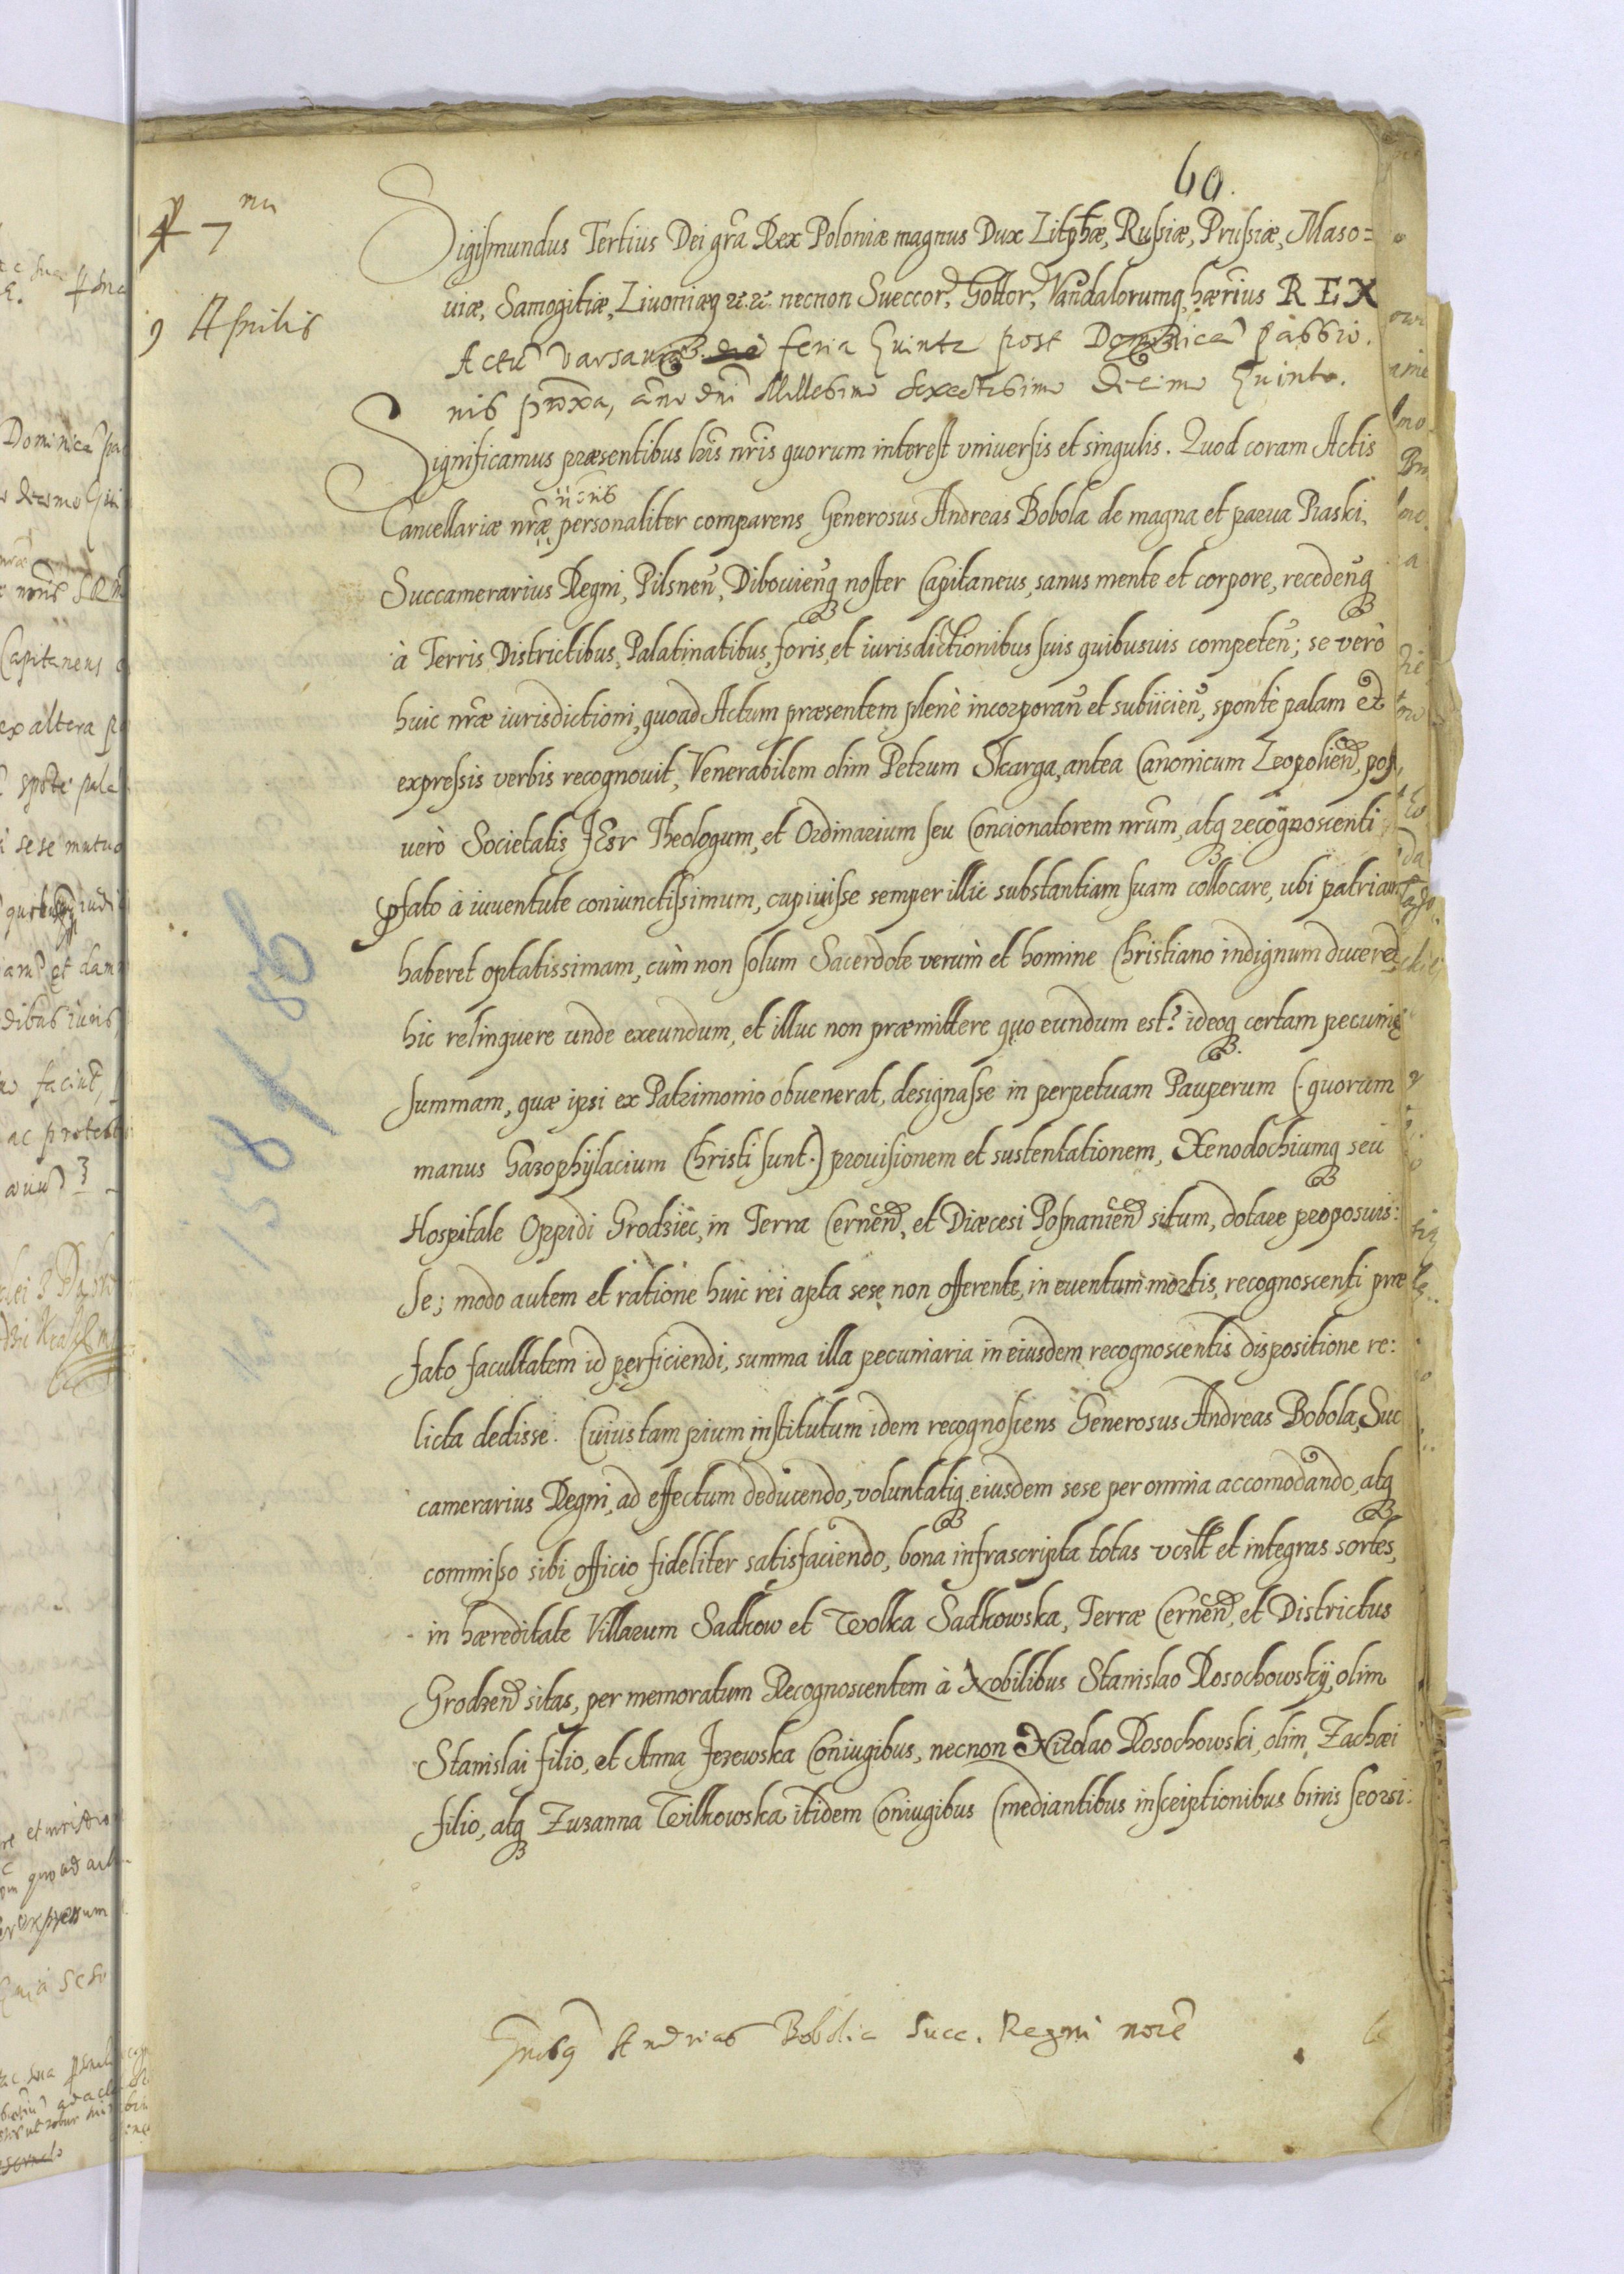 60.
7
9 Aprilis
Sigismundus Tertius Dei gra Rex Poloniæ magnus Dux Litphæ, Russiæ, Prussiæ, Maso=
uiæ, Samogitiæ, Liuoniæq necnon Sueccor, Gottor, Vandalorumq hærius REX
Actu Varsauiæ feria Quinta post Dominica Passio.
nis proxa, anno dni Millesimo Sexcetesimo Decimo Quinto.
Significamus præsentibus lris nris quorum interest vniuersis et singulis. Quod coram Actis
Cancellariæ nræ personaliter comparens Generosus Andreas Bobola de magna et parua Piaski,
Succamerarius Regni, Pilsnen, Dibouienq noster Capitaneus, sanus mente et corpore, recedenq
à Terris Districtibus, Palatinatibus, foris, et iurisdictionibus suis quibusuis competen; se verò
huic nræ iurisdictioni, quoad Actum præsentem plenè incorporan et subijcien, spontè palam et
expressis verbis recognouit, Venerabilem olim Petrum Skarga, antea Canonicum Leopolien, post
verò Societatis IEsv Theologum, et Ordinarium seu Concionatorem nrum, atq recognoscenti
pfato à iuuentute coniunctissimum, cupiuisse semper illic substantiam suam collocare, ubi patriam
haberet optatissimam, cùm non solum Sacerdote verùm et homine Christiano indignum duceret,
hic relinquere unde exeundum, et illuc non præmittere quo eundum est? ideoq certam pecuniæ
summam, quæ ipsi ex Patrimonio obuenerat, designasse in perpetuam Pauperum (quorum
manus Gazophylacium Christi sunt.) prouisionem et sustentationem, Xenodochiumq seu
Hospitale Oppidi Grodziec, in Terra Cernen, et Diæcesi Posnanien situm, dotare proposuis:
se; modo autem et ratione huic rei apta sese non offerente, in euentum mortis, recognoscenti præ
fato facultatem id perficiendi, summa illa pecuniaria in eiusdem recognoscentis dispositione re:
licta dedisse. Cuius tam pium institutum idem recognoscens Generosus Andreas Bobola, Suc
camerarius Regni, ad effectum deducendo, voluntatiq eiusdem sese per omnia accomodando, atq
commisso sibi officio fideliter satisfaciendo, bona infrascripta totas vczlt et integras sortes,
in hæreditate Villarum Sadkow et Wolka Sadkowska, Terræ Cernen, et Districtus
Grodzen sitas, per memoratum Recognoscentem à Nobilibus Stanislao Rosochowskij, olim
Stanislai filio, et Anna Jezewska Coniugibus, necnon Nicolao Rosochowski, olim Zachæi
filio, atq Zuzanna Wilkowska itidem Coniugibus (mediantibus inscriptionibus binis seorsi:
Andreas Bobola Succ. Regni